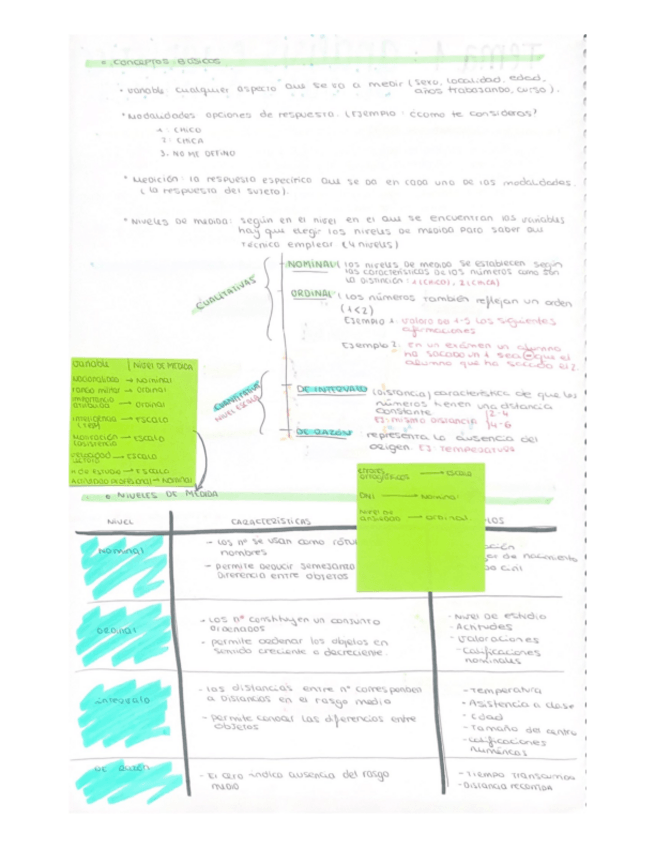 • CONCEPTOS BÁSICOS
• Variable: cualquier aspecto que se va a medir (sexo, localidad, edad,
años trabajando, curso).
• Modalidades opciones de respuesta. (Ejemplo: ¿como te consideras?
1: CHICO
2: CHICA
3. NO ME DEFINO
• Medición: la respuesta específica que se da en cada una de las modalidades.
(la respuesta del sujeto).
• Niveles de medida: según en el nivel en el que se encuentran las variables
hay que elegir los niveles de medida para saber que
técnica emplear (4 niveles)
CUALITATIVAS
NOMINAL (los niveles de medida se establecen según
las características de los números como son
la distinción: 1 (chico), 2 (chica)
ORDINAL (Los números también reflejan un orden
(1<2)
Ejemplo 1: valora de 1-5 las siguientes
afirmaciones
Ejemplo 2: En un exámen un alumno
ha sacado un 1 que el
alumno que ha sacado el 2.
CUANTITATIVAS
NIVEL ESCALA
DE INTERVALO (distancia) característica de que los
números tienen una distancia
constante
Ej: misma distancia 2-4
4-6
DE RAZÓN representa la ausencia del
origen. Ej: TEMPERATURA
Variable | NIVEL DE MEDIDA
Nacionalidad → Nominal
rango militar → Ordinal
importancia
atribuida → Ordinal
inteligencia → ESCALA
(test)
Motivación → ESCALA
(asistencia
velocidad → ESCALA
n de estudio → ESCALA
actividad profesional → Nominal
→ ESCALA
DNI → Nominal
Nivel de
ansiedad → ordinal.
• NIVELES DE MEDIDA
NIVEL
CARACTERÍSTICAS
LOS
Nominal
- Los nº se usan como
nombres
- permite deducir
diferencia entre objetos
de nacimiento
civil
ordinal
- Los nº constituyen un conjunto
ordenados
- permite ordenar los objetos en
sentido creciente o decreciente.
- Nivel de estudio
- Actitudes
- valoraciones
- Calificaciones
nominales
intervalo
- las distancias entre nº corresponden
a distancias en el rasgo medio
- permite conocer las diferencias entre
objetos
- Temperatura
- Asistencia a clase
- Edad
- Tamaño del centro
- calificaciones
numéricas
DE RAZÓN
- El cero indica ausencia del rasgo
medio
- Tiempo transcurrido
- Distancia recorrida